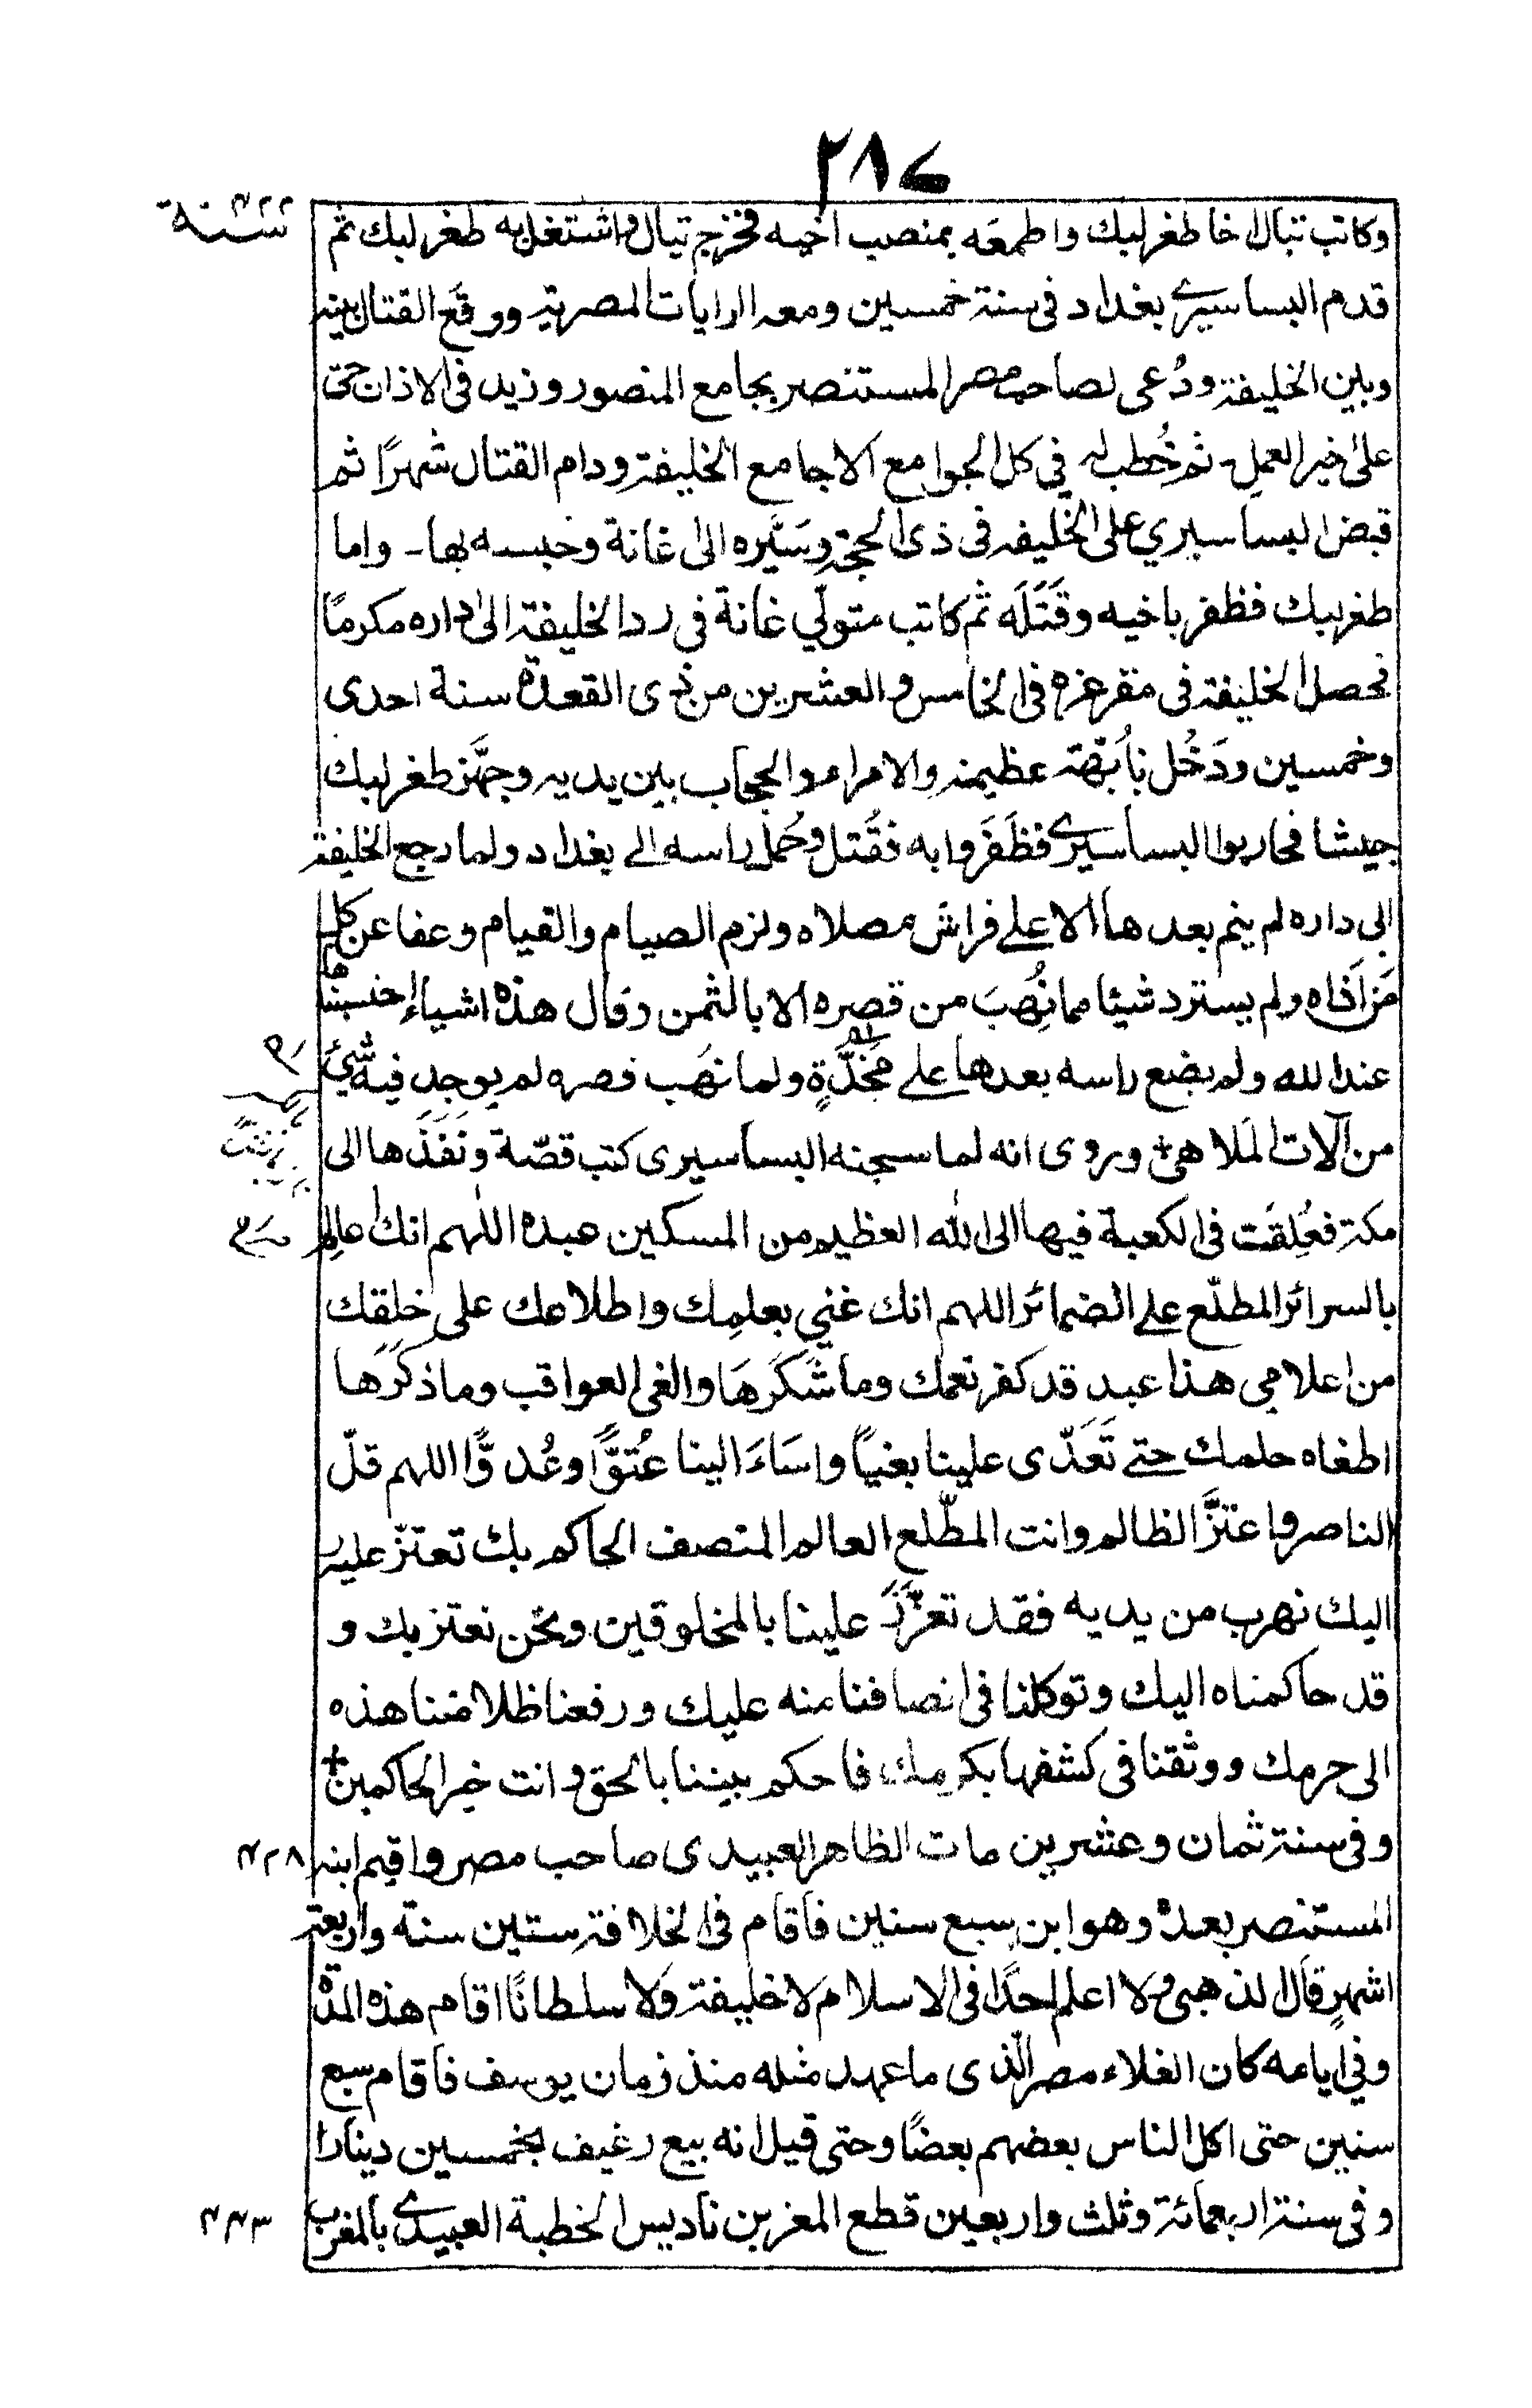 ٢٨٧
سنة ٤٢٢
وكاتب تبال اخا طغرلبك واطمعَه بمنصب اخيه فخرج تبال واشتغل به طغرلبك ثم
قدم البساسيري بغداد فى سنة خمسين ومعه الرايات المصرية ووقع القتال بينه
وبين الخليفة ودُعى لصاحب مصر المستنصر بجامع المنصور وزيد فى الاذان حى
على خير العمل۔ ثم خُطب له في كل الجوامع الا جامع الخليفة ودام القتال شهرًا ثم
قبض البساسيري على الخليفه فى ذى الحجة وسَيَّره الى غانة وحبسه بها۔ واما
طغرلبك فظفر باخيه وقَتَلَه ثم كاتب متولّي غانة فى رد الخليفة الى داره مكرمًا
فحصل الخليفة فى مقر عزه فى الخامس والعشرين من ذى القعدة سنة احدى
وخمسين ودَخُل بأبّهة عظيمة والامراء والحجاب بين يديه وجهَّز طغرلبك
جيشا فحاربوا البساسيرى فظَفَروا به فقُتل وحُمل راسه الى بغداد ولما رجع الخليفة
الى داره لم ينم بعدها الا على فراش مصلاه ولزم الصيام والقيام وعفا عن كل
مَن اَذاه ولم يسترد شيئا مما نُهِبَ من قصره الا بالثمن وقال هذه اشياء احتسبناها
عند الله ولم يضع راسه بعدها على مَخَدَّةٍ ولما نهَب قصره لم يوجد فيه شئ
من آلات المَلاهى+ وروى انه لما سجنه البساسيرى كتب قصّة ونَفَذَها الى
مكة فعُلِقَت فى الكعبة فيها الى الله العظيم من المسكين عبده اللهم انك عالِم
بالسرائر المطلّع على الضمائر اللهم انك غني بعلمِك واطلاعك على خلقك
من اعلامى هذا عبد قد كفر نعمك وما شَكَرَهَا والغى العواقب وما ذكَرَها
اطغاه حلمك حتى تَعَدّى علينا بغيًا واسَاءَ الينا عُتوًّا وعُدوًّا اللهم قلّ
الناصر واعتزَّ الظالم وانت المطّلع العالم المنصف الحاكم بك تعتزّ عليه
اليك نهرب من يديه فقد تعزّزَ علينا بالمخلوقين ونحن نعتز بك و
قد حاكمناه اليك وتوكلنا فى انصافنا منه عليك ورفعنا ظلامتنا هذه
الى حرمك ووثقنا فى كشفها بكرمك فاحكم بيننا بالحق وانت خير الحاكمين+
وفى سنة ثمان وعشرين مات الظاهر العبيدى صاحب مصر واقيم ابنه
٤٢٨
المستنصر بعده وهو ابن سبع سنين فاقام فى الخلافة ستين سنة واربعة
اشهرٍ قال الذهبى ولا اعلم احدًا فى الاسلام لا خليفة ولا سلطانًا اقام هذه المدة
وفي ايامه كان الغلاء مصر الّذى ما عهد مثله منذ زمان يوسف فاقام سبع
سنين حتى اكل الناس بعضهم بعضًا وحتى قيل انه بيع رغيف بخمسين دينارا
وفى سنة اربعمائة وثلث واربعين قطع المعز بن ناديس الخطبة العبيدى بالمغرب
٤٤٣